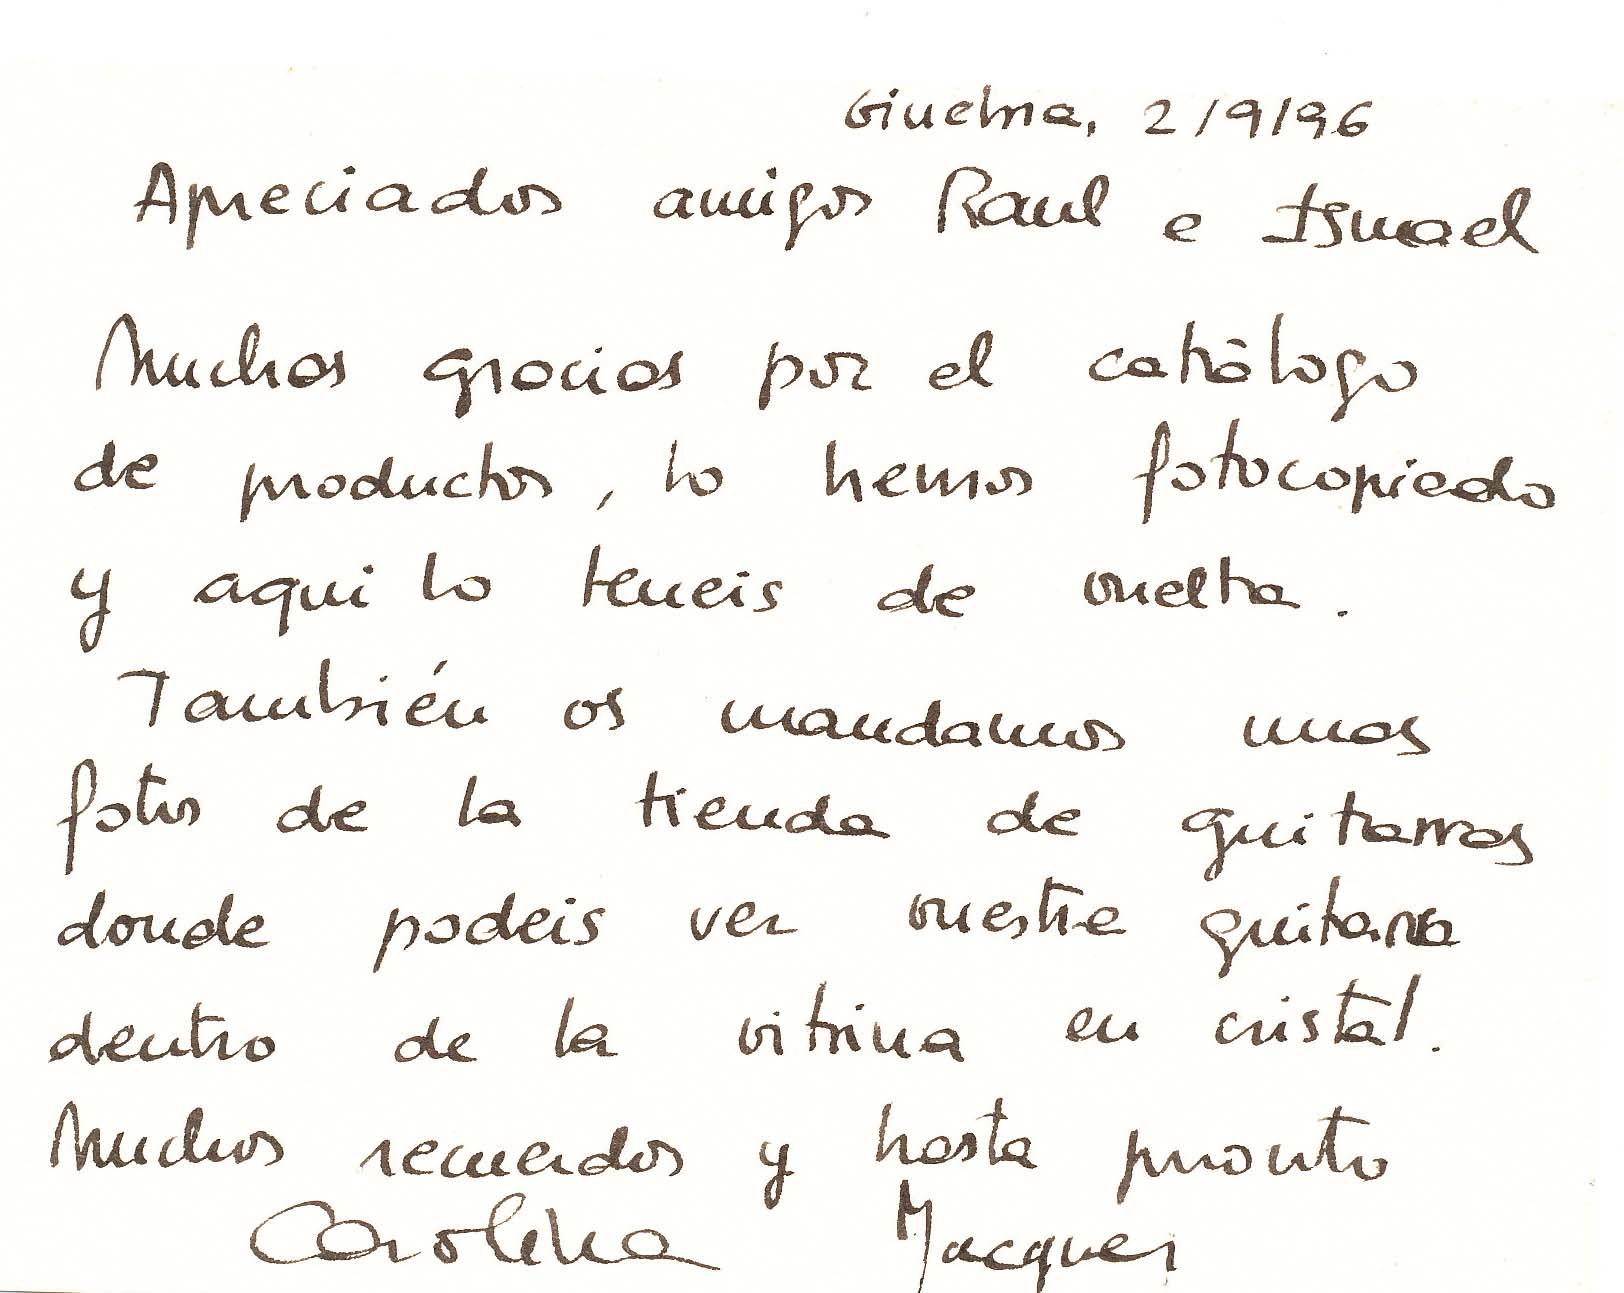 Ginebra, 2/9/96
Apreciados amigos Raul e Ismael
Muchas gracias por el catàlogo
de productos, lo hemos fotocopiado
y aqui lo teneis de vuelta.
También os mandamos unas
fotos de la tienda de guitarras
donde podeis ver vuestra guitarra
dentro de la vitrina en cristal.
Muchos recuerdos y hasta pronto
Carolina Jacques